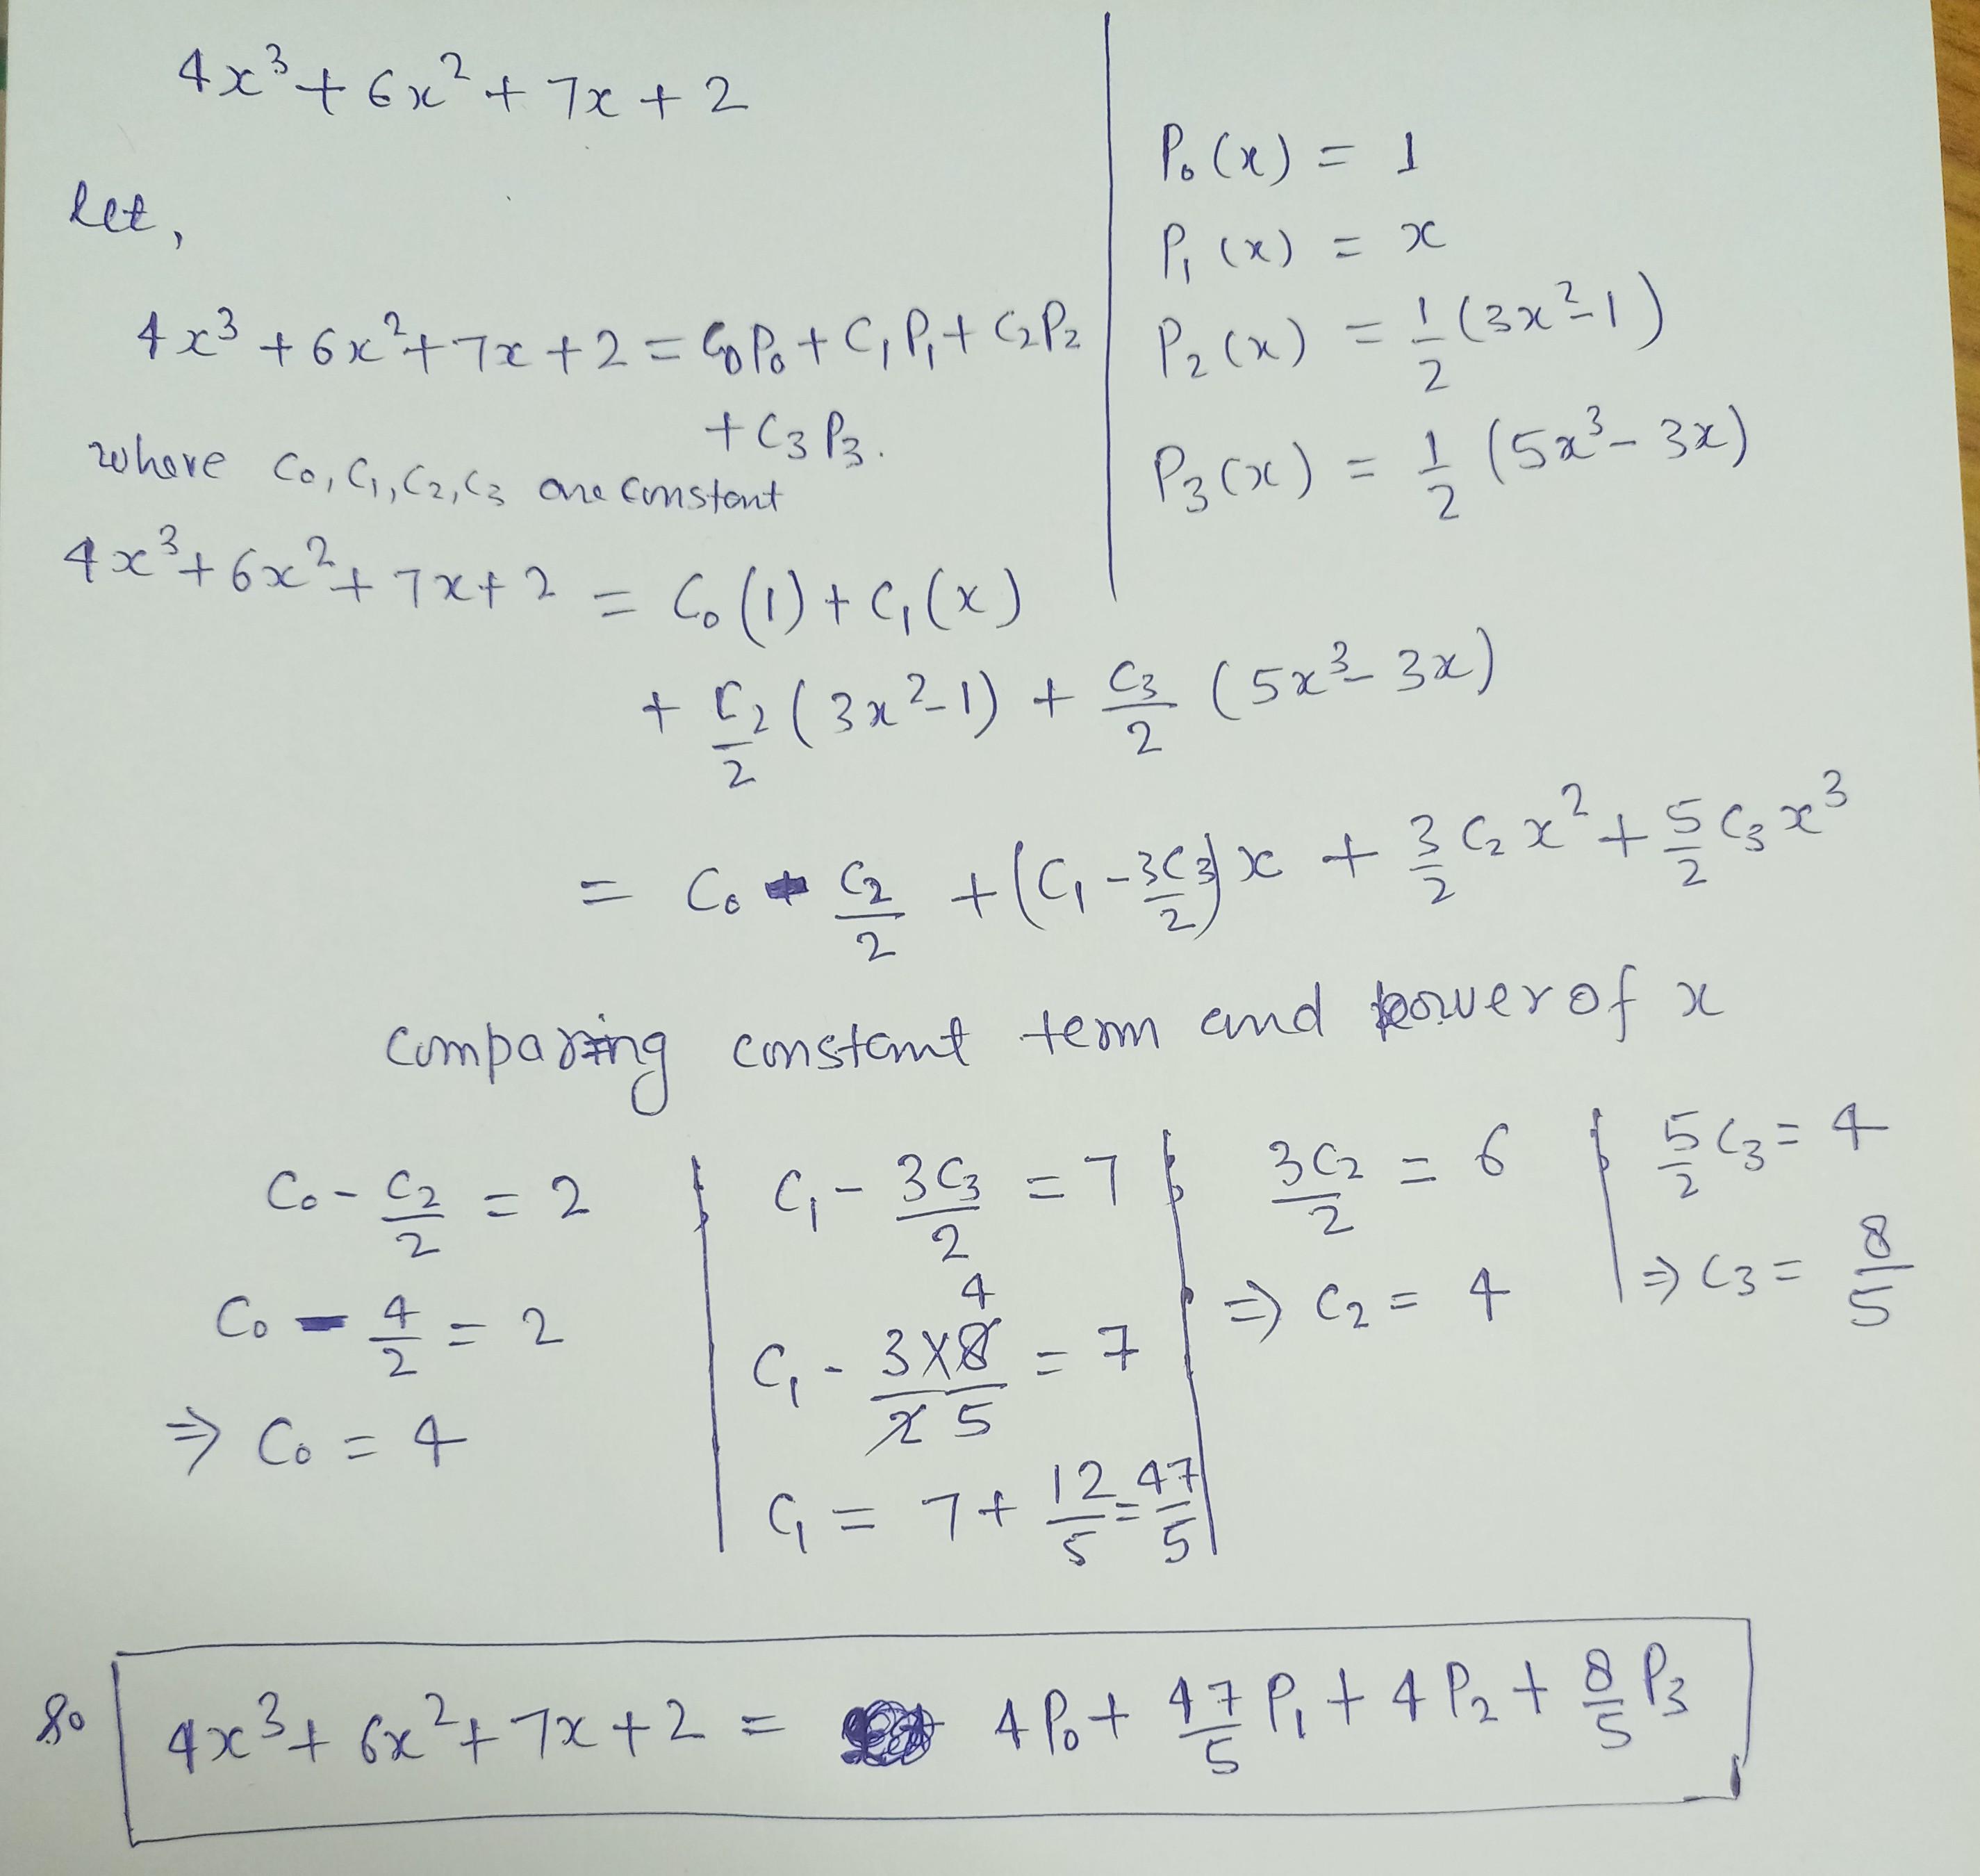 4x³ + 6x² + 7x + 2
let,
4x³ + 6x² + 7x + 2 = C₀P₀ + C₁P₁ + C₂P₂
+ C₃P₃.
where C₀, C₁, C₂, C₃ are constant
P₀(x) = 1
P₁(x) = x
P₂(x) = 1/2 (3x² - 1)
P₃(x) = 1/2 (5x³ - 3x)
4x³ + 6x² + 7x + 2 = C₀(1) + C₁(x)
+ C₂/2 (3x² - 1) + C₃/2 (5x³ - 3x)
= C₀ - C₂/2 + (C₁ - 3C₃/2)x + 3/2 C₂x² + 5/2 C₃x³
comparing constant term and power of x
C₀ - C₂/2 = 2
C₀ - 4/2 = 2
⇒ C₀ = 4
C₁ - 3C₃/2 = 7
4
C₁ - 3×8/2 5 = 7
C₁ = 7 + 12/5 = 47/5
3C₂/2 = 6
⇒ C₂ = 4
5/2 C₃ = 4
⇒ C₃ = 8/5
So 4x³ + 6x² + 7x + 2 = 4P₀ + 47/5 P₁ + 4P₂ + 8/5 P₃